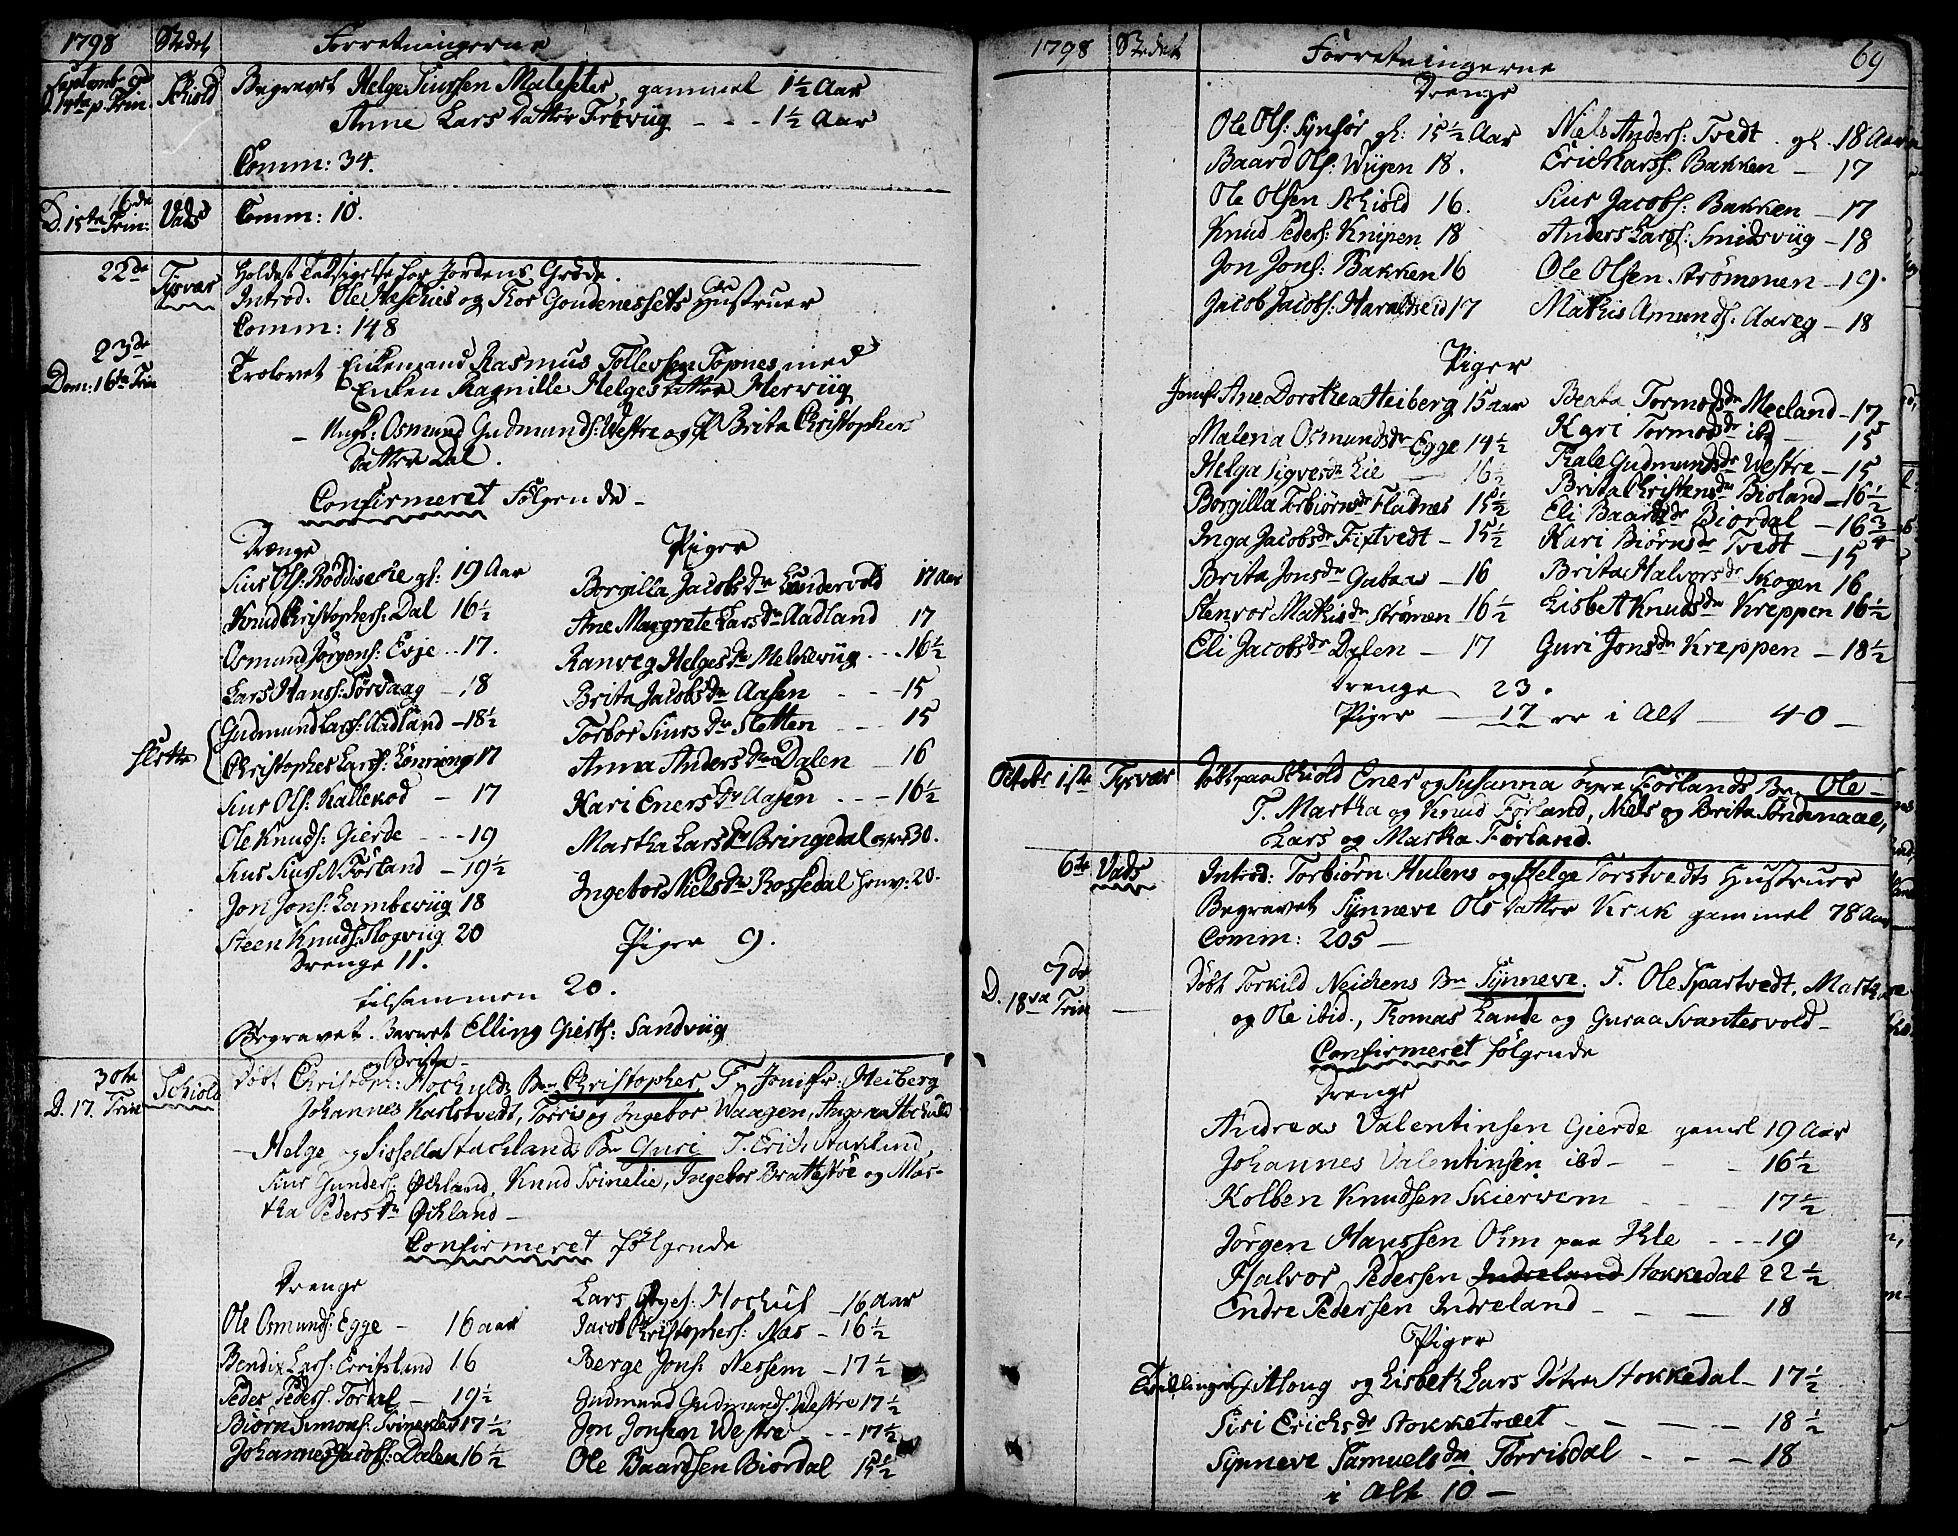 1798 Stedet Forretningerne
Septembr 9de
D. 14de p. Trin. Schiold Begravet Helge Siursen Malesetes, gammel 1½ Aar
Anne Lars Datter Frøviig - - - 1½ Aar
Comm: 34.
16de
D. 15de Trin: Vads Comm: 10.
22de Tysvær Holdet Taksigelse for Jordens Grøde.
Introd: Ole Haschies og Thor Goudenessets Hustruer
Comm: 148
23de
Dom: 16de Trin Trolovet Enkemand Rasmus Tollevsen Topnes med
Enken Ragnille Helges Datter Herviig
- Ungk: Osmund Gudmunds: Westre og P. Brita Christopher
Datter Dal.
Confirmeret Følgende -
Drænge
Siur Ols: Røddische gl: 19 Aar
Knud Christophers: Dal 16½
Osmund Jørgens: Evje .. 17.
Lars Hanss: Førdaag - 18
Gudmund Larss: Aadland - 18½
Slette Christopher Larss: Lønning 17
Siur Ols: Kallekod - 17
Ole Knuds: Gierde - - - 19
Siur Siurs. N. Førland - 19½
Jon Jons: Lambeviig 18
Steen Knuds: Slogviig 20
Drenge 11.
Piger
Borgilla Jacobs Dr Lundervold 17 Aar
Ane Margrete Lars Dr Aadland 17
Ranveg Helges Dr Melkeviig - - - 16½
Brita Jacobs Dr Aasen - - - 15
Torbor Siurs Dr Sletten - - 15
Anna Anders Dr Dalen - 16
Kari Eners Dr Aasen - - - 16½
Martha Lars Dr Bringedal over 30.
Ingebor Niels Dr Rossedal henv: 20.
Piger 9.
tilsammen 20.
Begravet. Barnet Elling Giertz: Sandviig
30te
D. 17. Trin Schiold Døbt Christoph: Brita Hochulds Bn Christopher F. Jomfr: Heiberg
Johannes Karlstvedt, Torris og Ingebor Waagen, Ingeraa Hochuld
- Helge og Sissella Stachlands Bn Guri T. Erich Stakland,
Siur Gunders: Øchland, Knud Svinelie, Ingebor Brattestøe og Mar-
tha Peders Dr Øchland -
Confirmeret følgende
Drenge
Ole Osmunds: Egge - 16 aar
Bendix Larss: Erritsland 16
Peder Peders. Tordal - 19½
Biørn Simons: Svinelie 17½
Johannes Jacobs: Dalen 16½
Lars Aages: Hochul - 16 Aar
Jacob Christophers: Næs - 16½
Berge Jons: Nessem - 17½
Gudmund Gudmunds: Westre 17½
Jon Jonsen Westre - - - 17½
Ole Baardsen Biordal 15½
1798 Stedet Forretningerne 69
Drenge
Ole Ols: Synhør gl: 15½ Aar
Baard Ols: Wiigen 18.
Ole Olsen Schiold 16.
Knud Peders: Knipen 18
Jon Jons: Bakken 16
Jacob Jacobs: Haraldseid 17
Niels Anders: Tvedt gl. 18 Aar
Erich Larss. Bakken - 17
Siur Jacobs: Bakken - 17
Anders Larss: Smidsviig - 18
Ole Olsen Strømmen - 19.
Mathis Amunds: Aareg - 18
Piger
Jomfr Ane Dorothea Heiberg 15 aar
Malena Osmunds dr Egge 14½
Helga Sigves dr Lie - 16½
Borgilla Torbiørns dr Fladnes 15½
Inga Jacobs dr Fixtvedt - 15½
Brita Jons dr Gabaas - 16
Stenvor Mathis dr Strømen 16½
Eli Jacobs dr Dalen - 17
Beata Tormods dr Meeland - 17
Kari Tormods dr ibd - 15
Thale Gudmunds dr Westre - 15
Brita Christens dr Bioland - 16½
Eli Baards dr Biordal - 16¾
Kari Biørns dr Tvedt - 15
Brita Halvors dr Skogen 16
Lisbet Knuds dr Kreppen 16½
Guri Jons dr Kreppen - 18½
Drenge 23.
Piger - 17 er i Alt - 40 -
Octobr 1ste Tysvær Døbt paa Schiold Ener og Susanna øvre Førlands Bn. Ole -
T. Martha og Knud Førland, Niels og Brita Søndenaae,
Lars og Martha Førland.
6te Vads Introd: Torbiørn Hulens og Helge Torstvedts Hustruer
Begravet Synneve Ols Datter Krak gammel 78 Aar
Comm: 205 -
7de
D. 18de Trin Døbt Torkild Neichens Bn Synneve. F. Ole Spartvedt, Martha
og Ole ibid., Thomas Lande og Guraa Svantesvold -
Confirmeret følgende
Drenge
Andreas Valentinsen Gierde gamel 19 Aar
Johannes Valentinsen ibd - - - 16½
Kolben Knudsen Skierwem - - - 17½
Jørgen Hanssen Ohm paa Ihle - - - 19
Halvor Pedersen Indreland Stokkedal 22½
Endre Pedersen Indreland - - - 18
Piger
Tvillinger Aloug og Lisbeth Lars Døtre Stokkedal - 17½
Siri Erichs dr Stokketræet - - - 18½
Synneve Samuels dr Torrisdal - - - 18
i Alt 10 -